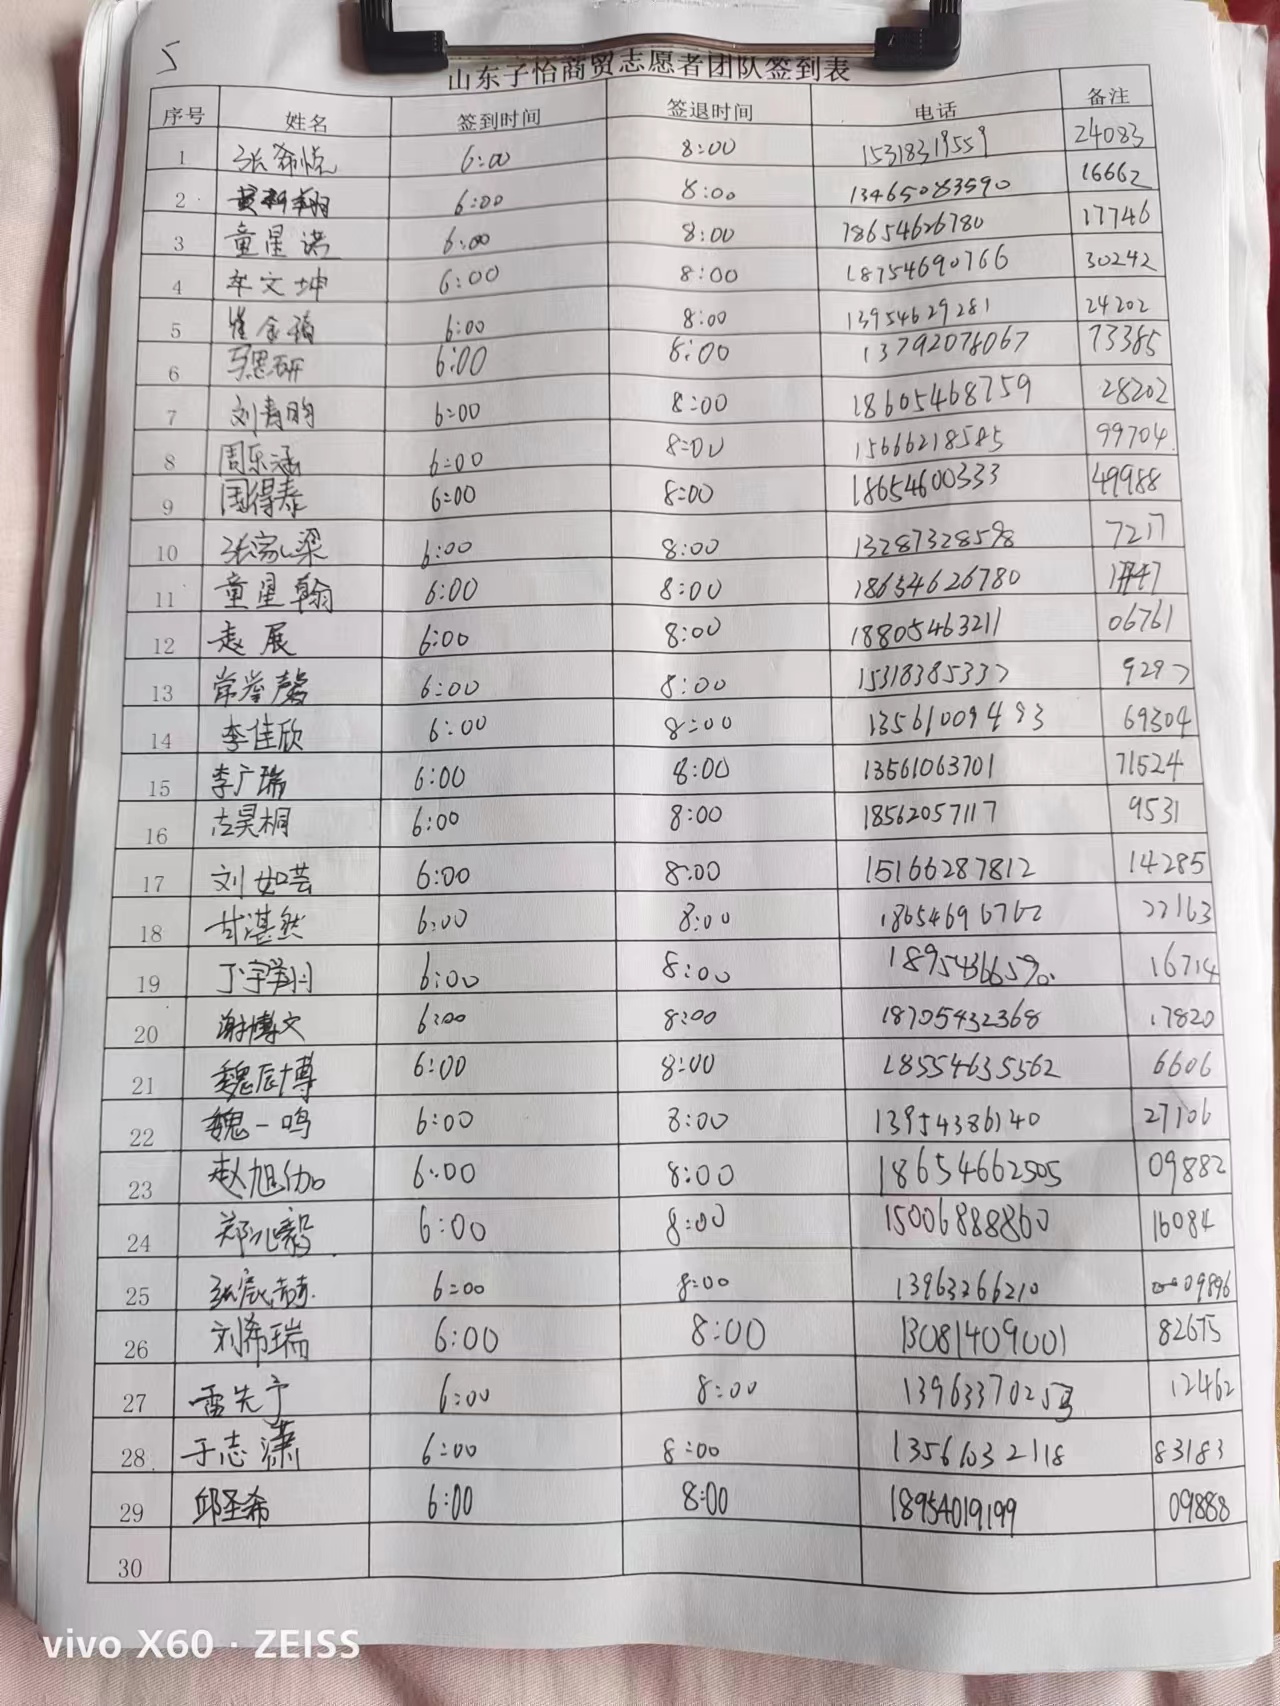 5
山东子怡商贸志愿者团队签到表
序号 姓名 签到时间 签退时间 电话 备注
1 张希悦 6:00 8:00 15318319559 24083
2 6:00 8:00 13465083590 16662
3 童星淇 6:00 8:00 18654626780 17746
4 牟文坤 6:00 8:00 18754690766 30242
5 崔金 6:00 8:00 13954629281 24202
6 马恩研 6:00 8:00 13792078067 73385
7 刘青昀 6:00 8:00 18605468759 28202
8 周乐涵 6:00 8:00 15666218585 99704
9 国得泰 6:00 8:00 18654600333 49988
10 张家梁 6:00 8:00 13287328598 7217
11 童星翰 6:00 8:00 18654626780
12 赵展 6:00 8:00 18805463211 06761
13 常誉馨 6:00 8:00 15318385337 9297
14 李佳欣 6:00 8:00 13561009493 69304
15 李广瑞 6:00 8:00 13561063701 71524
16 昊桐 6:00 8:00 18562057117 9531
17 刘如芸 6:00 8:00 15166287812 14285
18 甘湛然 6:00 8:00 18654696762 22163
19 丁宇翔 6:00 8:00 16714
20 谢博文 6:00 8:00 18705432368 17820
21 魏辰博 6:00 8:00 18554635562 6606
22 魏一鸣 6:00 8:00 13954386140 27106
23 赵旭伽 6:00 8:00 18654662505 09882
24 郑兆毅 6:00 8:00 15006888860 16084
25 张宸赫 6:00 8:00 13963266210 09896
26 刘希瑞 6:00 8:00 13081409001 82675
27 雷先予 6:00 8:00 13963370253 12462
28 于志潇 6:00 8:00 13561032118 83183
29 邱圣希 6:00 8:00 18954019199 09888
30
vivo X60 · ZEISS